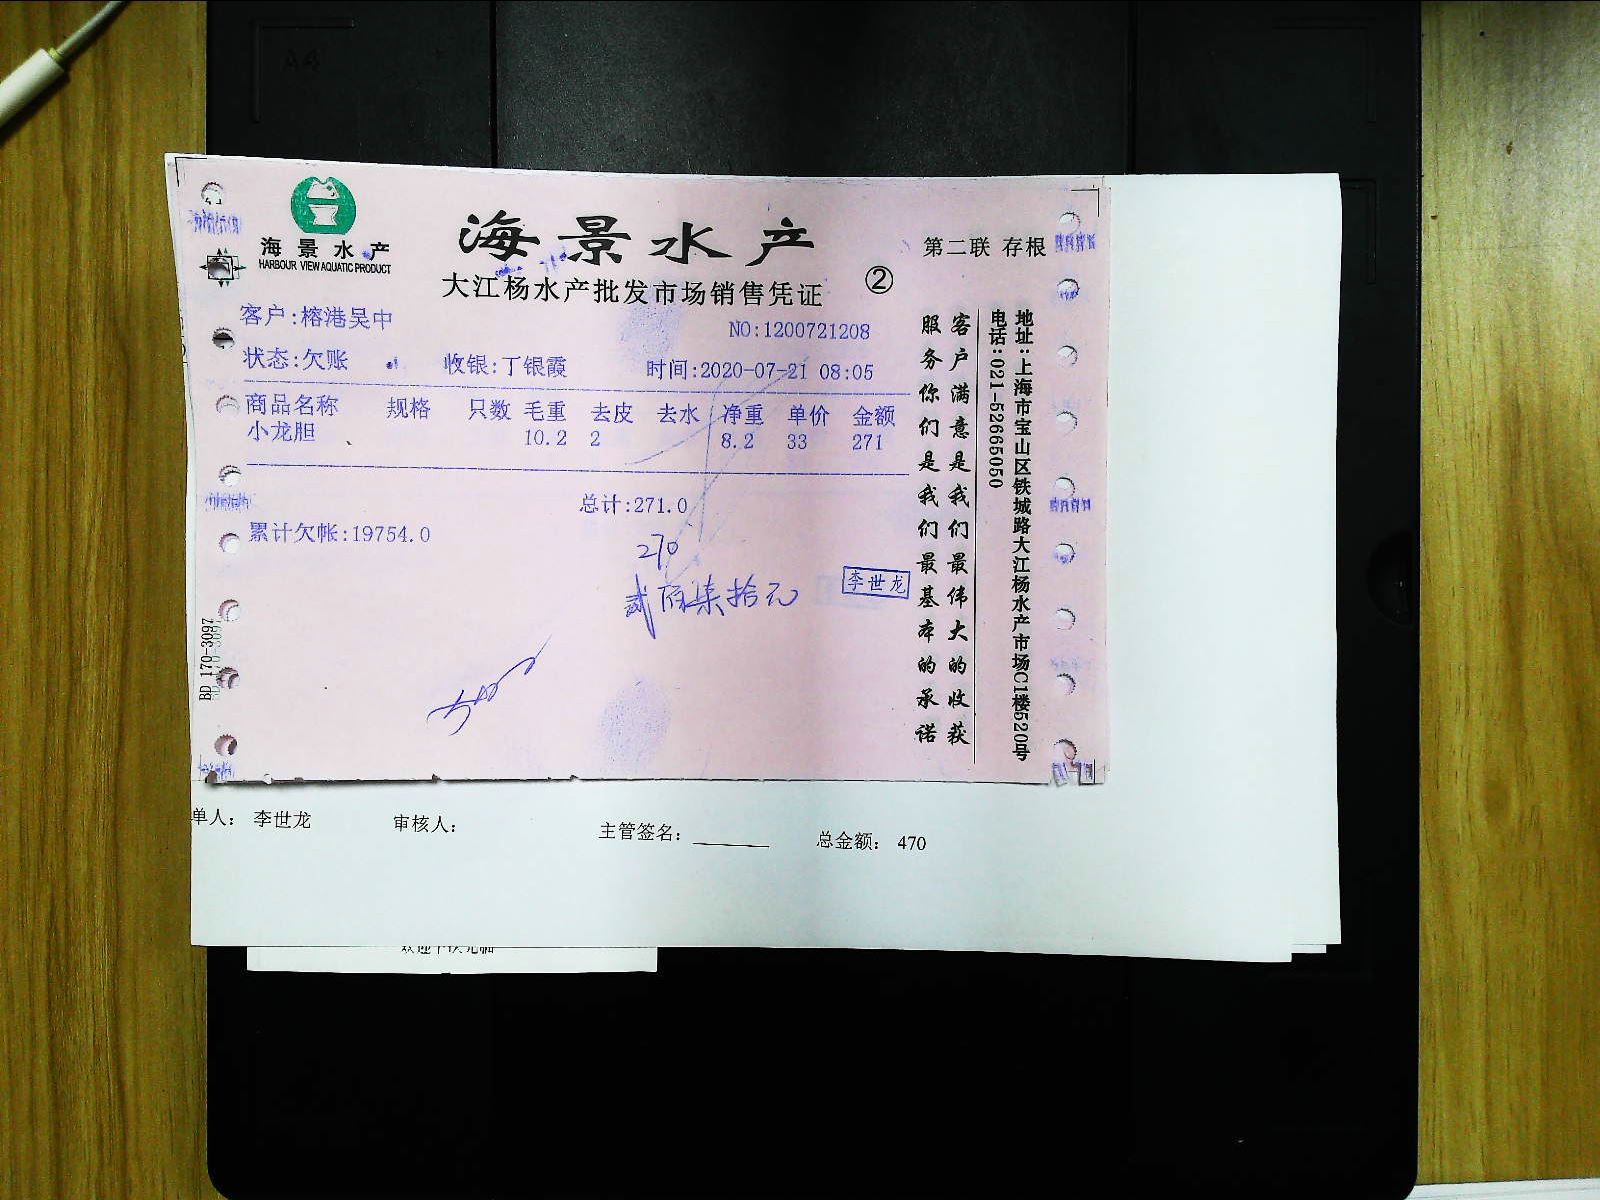 A4
海景水产
HARBOUR VIEW AQUATIC PRODUCT
海景水产
大江杨水产批发市场销售凭证
②
第二联 存根
客户:榕港吴中
NO:1200721208
状态:欠账 收银:丁银霞 时间:2020-07-21 08:05
商品名称 规格 只数 毛重 去皮 去水 净重 单价 金额
小龙胆 10.2 2 8.2 33 271
总计:271.0
累计欠帐:19754.0
270
贰佰柒拾元
李世龙
客户满意是我们最伟大的收获
服务你们是我们最基本的承诺
地址:上海市宝山区铁城路大江杨水产市场C1楼520号
电话:021-52665050
BD 170-3097
单人: 李世龙 审核人: 主管签名: 总金额: 470